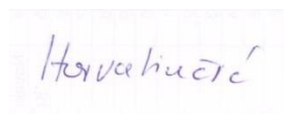 Horvatinčić